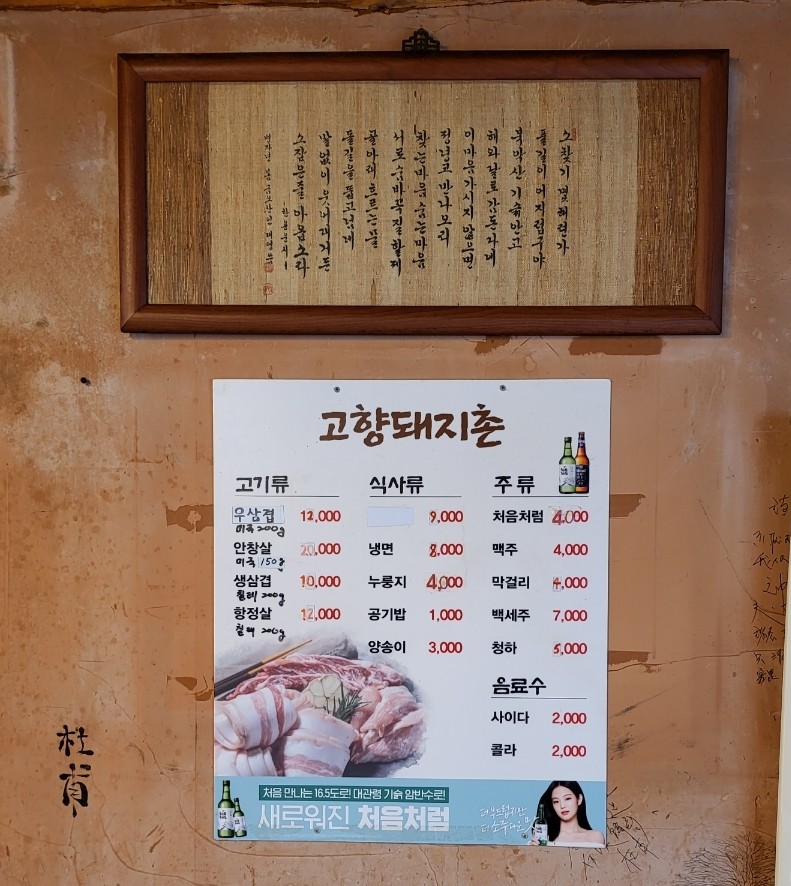 소찾기 몇해런가
풀길이 어지럽구야
북악산 기슭안고
해와 달로 감돈다네
이마음 가시지 않으면
정녕코 만나보리
찾는마음 숨는마음
서로 숨바꼭질 할제
골아래 흐르는물
돌길을 뚫고 넘네
말없이 웃어내거든
소잡은줄 아옵소라
고향돼지촌
고기류
우삼겹 12,000
미국 200g
안창살 20,000
미국 150g
생삼겹 10,000
칠레 200g
항정살 12,000
칠레 200g
식사류
9,000
냉면 8,000
누룽지 4,000
공기밥 1,000
양송이 3,000
주류
처음처럼 4,000
맥주 4,000
막걸리 4,000
백세주 7,000
청하 5,000
음료수
사이다 2,000
콜라 2,000
처음 만나는 16.5도로! 대관령 기슭 암반수로!
새로워진 처음처럼
더 부드럽지만
杜甫